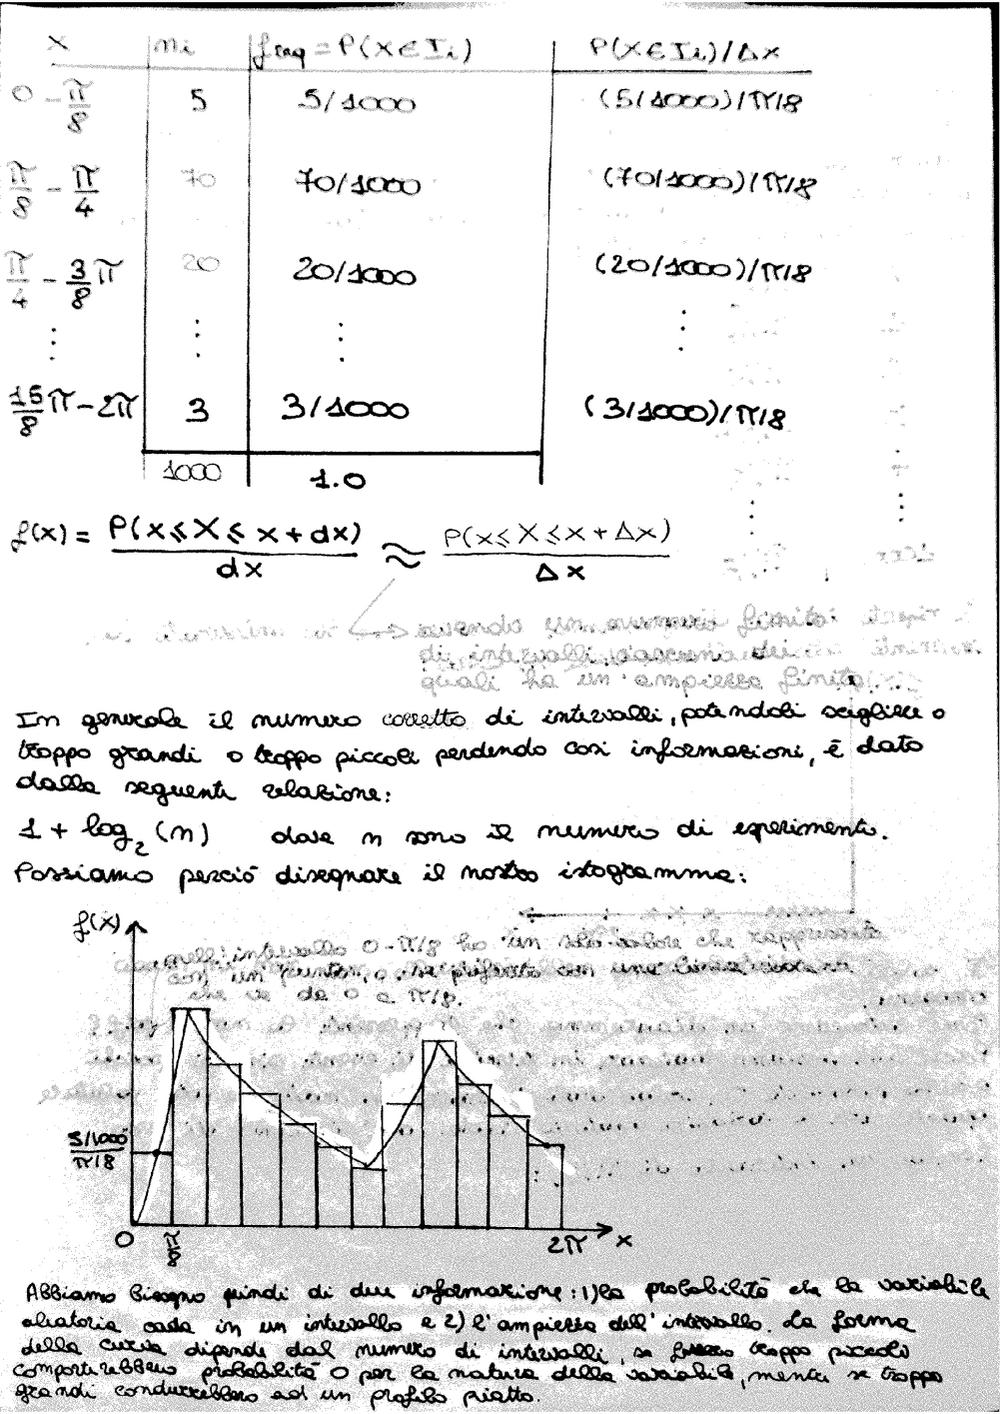 x | ni | freq = P(X∈Ii) | P(X∈Ii)/Δx
0 - π/8 | 5 | 5/1000 | (5/1000)/π/8
π/8 - π/4 | 70 | 70/1000 | (70/1000)/π/8
π/4 - 3/8 π | 20 | 20/1000 | (20/1000)/π/8
⋮ ⋮ ⋮ ⋮
15/8 π - 2π | 3 | 3/1000 | (3/1000)/π/8
1000 | 1.0
f(x) = P(x≤X≤x+dx)/dx ≈ P(x≤X≤x+Δx)/Δx
avendo un numero finito
di intervalli ciascuno dei
quali ha un'ampiezza finita
In generale il numero corretto di intervalli, potendoli scegliere o
troppo grandi o troppo piccoli perdendo così informazioni, è dato
dalla seguente relazione:
1 + log₂(n) dove n sono il numero di esperimenti.
Possiamo perciò disegnare il nostro istogramma:
f(x)
nell'intervallo 0-π/8 ho un solo valore che rappresento
con un punto, o se preferito con una linea
che va da 0 a π/8.
5/1000
π/8
0 π/8 2π x
Abbiamo bisogno quindi di due informazione: 1) la probabilità che la variabile
aleatoria cada in un intervallo e 2) l'ampiezza dell'intervallo. La forma
della curva dipende dal numero di intervalli, se fossero troppo piccoli
comporterebbero probabilità 0 per la natura della variabile, mentre se troppo
grandi condurrebbero ad un profilo piatto.